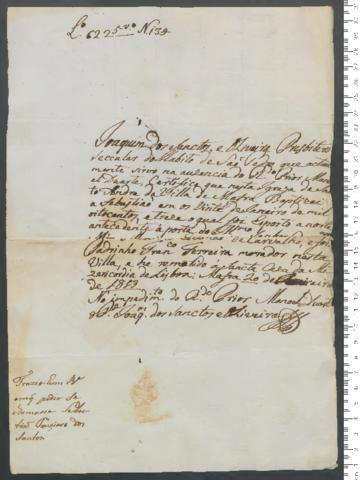 Lo 62 25vo N 134
Joaquim dos Sanctos, e Oliveira Presbitero
Secular do Habito de Sam Pedro que actual
mente sirvo na auzencia do Rdo Prior Mano
el Duarte, Certefico que nesta Igreja de San
to Andre da Villa de Mafra Baptizei
a Sebastião em os Vinte de Janeiro de mil
oitocentos, e treze o qual foi exposto a noite
antecedente á porta do
de Carvalho, e foi
Padrinho Franco Ferreira morador nesta
Villa, e he remetido á Sancta Caza da Mi
zericordia de Lisboa: Mafra 20 de Janeiro
de 1813
No impedimto do Rdo Prior Manoel Duarte
Joaqm dos Sanctos e Oliveira
Trazia hum
pedir se
chamasse Sebas
tião dos
Santos